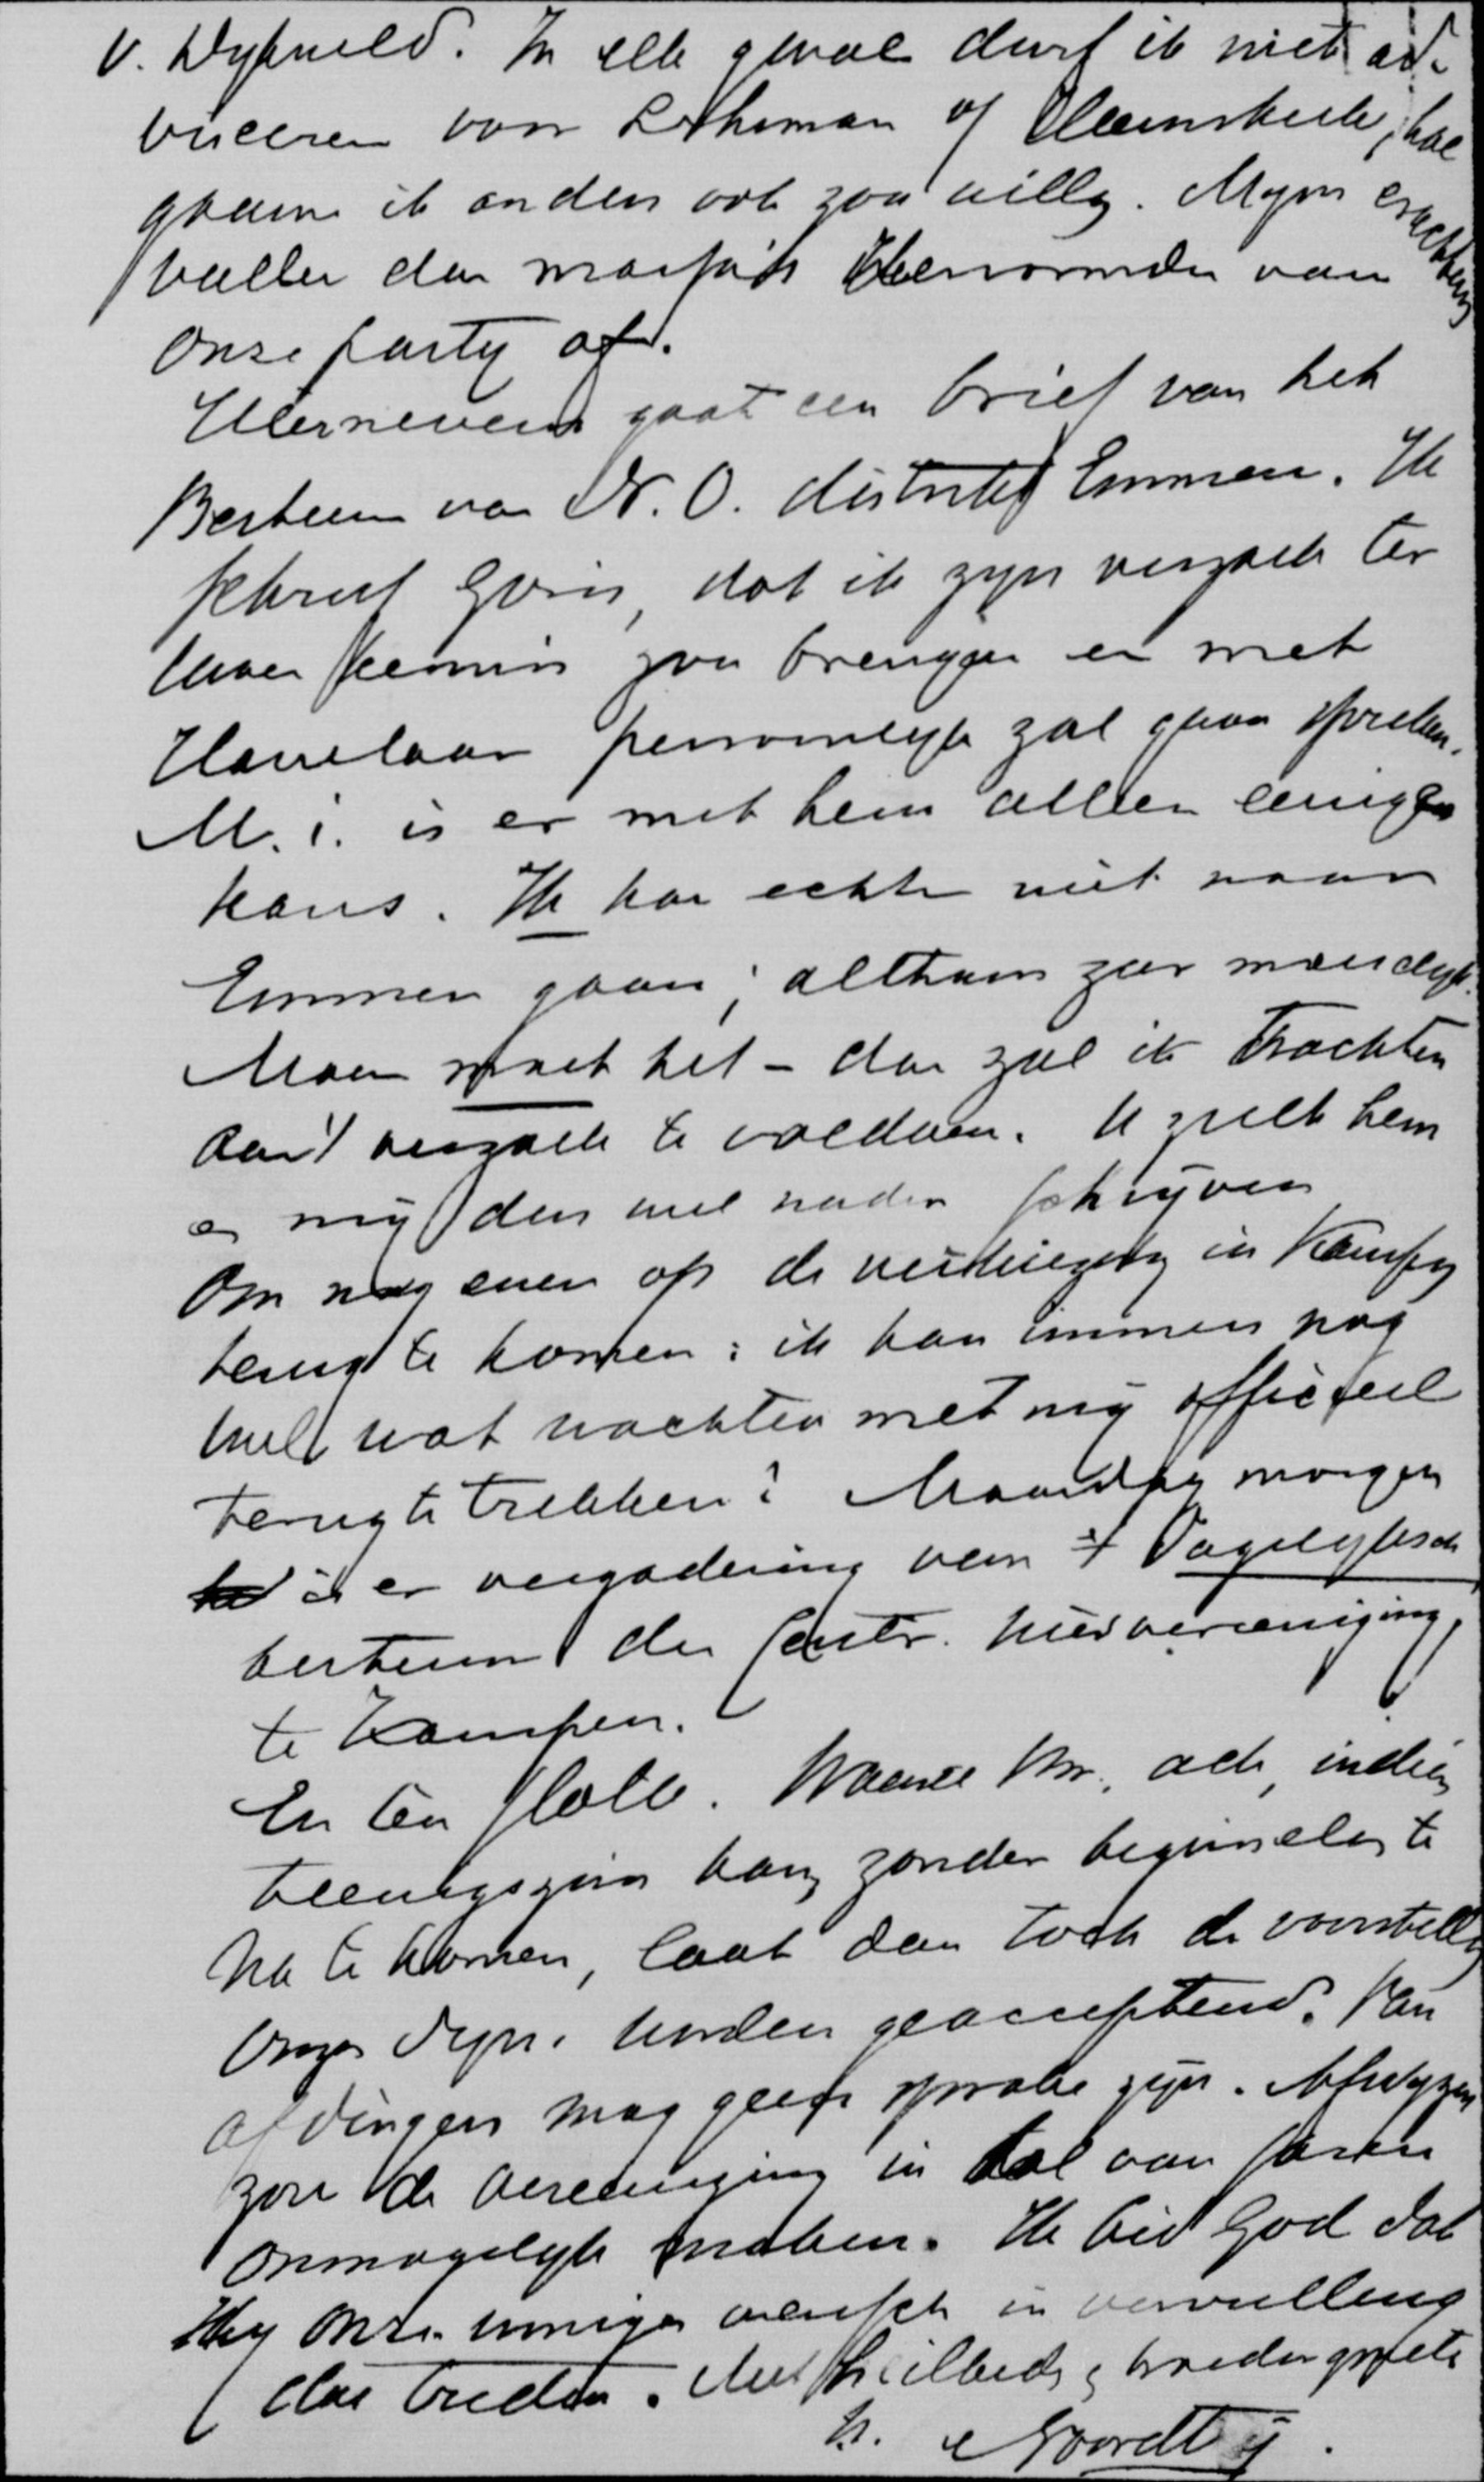 v. Dykveld. In elk geval durf ik niet ad-
viseeren voor Lohman of Heemskerk, hoe
gaarne ik anders ook zou willen. Myns erachtens
vallen dan massa's Hervormden van
onze party af.
Hiernevens gaat een brief van het
Bestuur van N. O. district Emmen. Ik
schreef Goris, dat ik zyn verzoek ter
Uwer kennis zou brengen en met
Havelaar persoonlyk zal gaan spreken.
M. i. is er met hem alleen eenige
kans. Ik kan echter niet naar
Emmen gaan; althans zeer moeielyk.
Maar moet het – dan zal ik trachten
aan 't verzoek te voldoen. U zult hem
en mij dan wel nader schrijven
Om nog even op de vereeniging in Kampen
terug te komen: ik kan immers nog
wel wat wachten met mij officieel
terug te trekken? Maandag morgen
is er vergadering van 't Dagelyksch
bestuur der Centr. Kiesvereeniging,
te Kampen.
En ten slotte. Waarde Dr., ach, indien
eenigszins kan, zonder beginselen te
na te komen, laat dan toch de voorstellen
onzer Syn. worden geaccepteerd. Van
afdingen mag geen sprake zyn. Afwyzen
zou de vereeniging in tal van jaren
onmogelyk maken. Ik bid God dat
Hy onze innige wensch in vervulling
doe treden. Met heilbede, broedergroete
Noordtzij.